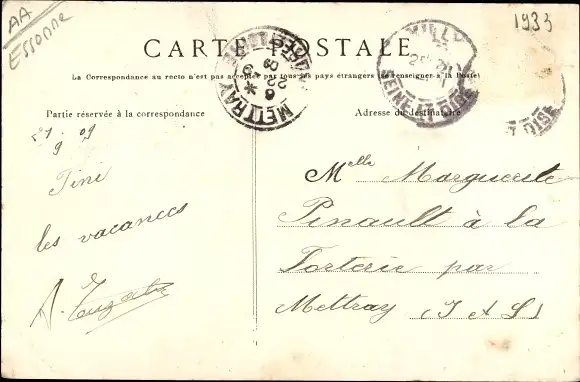 AA
Essonne
1933
CARTE POSTALE
La Correspondance au recto n'est pas acceptée par tous les pays étrangers (Se renseigner à la Poste)
Partie réservée à la correspondance
Adresse du destinataire
METTRAY
22
9
MILLY
SEINE-ET-OISE
ET OISE
21 9 09
Fini
les vacances
Melle Marguerite
Pinault à la
Torterie par
Mettray (I & L)